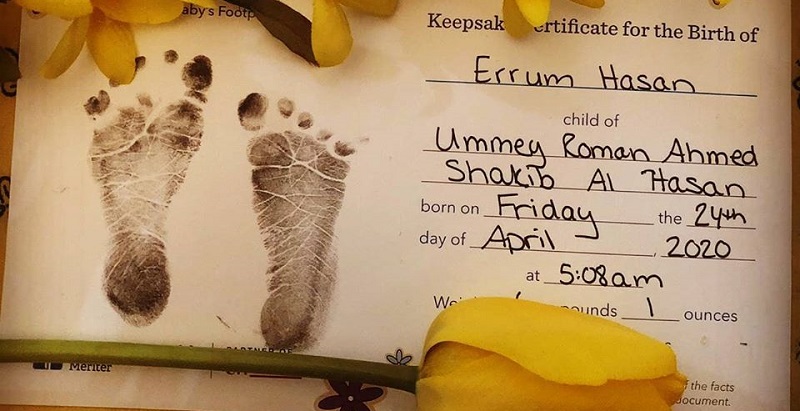 Baby's Footp
Keepsak ertificate for the Birth of
Errum Hasan
child of
Ummey Roman Ahmed
Shakib Al Hasan
born on Friday the 24th
day of April , 2020
at 5:08am
We ounds 1 ounces
Meriter
PARTNER OF
f the facts
document.